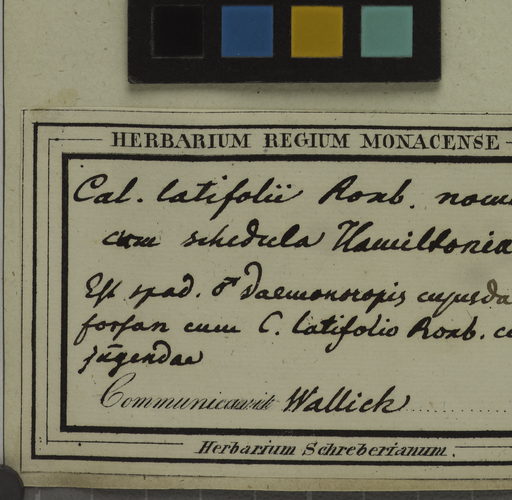 HERBARIUM REGIUM MONACENSE
Cal. latifolii Roxb.
cum schedula Hamiltonia
Est spad. ♂ Daemonoropis cujusda
forsan cum C. latifolio Roxb. co
jungendae
Communicavit Wallich
Herbarium Schreberianum.